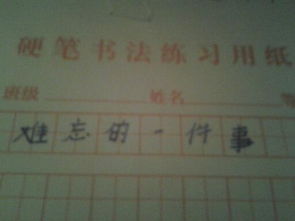 硬笔书法练习用纸
班级 姓名
难忘的一件事